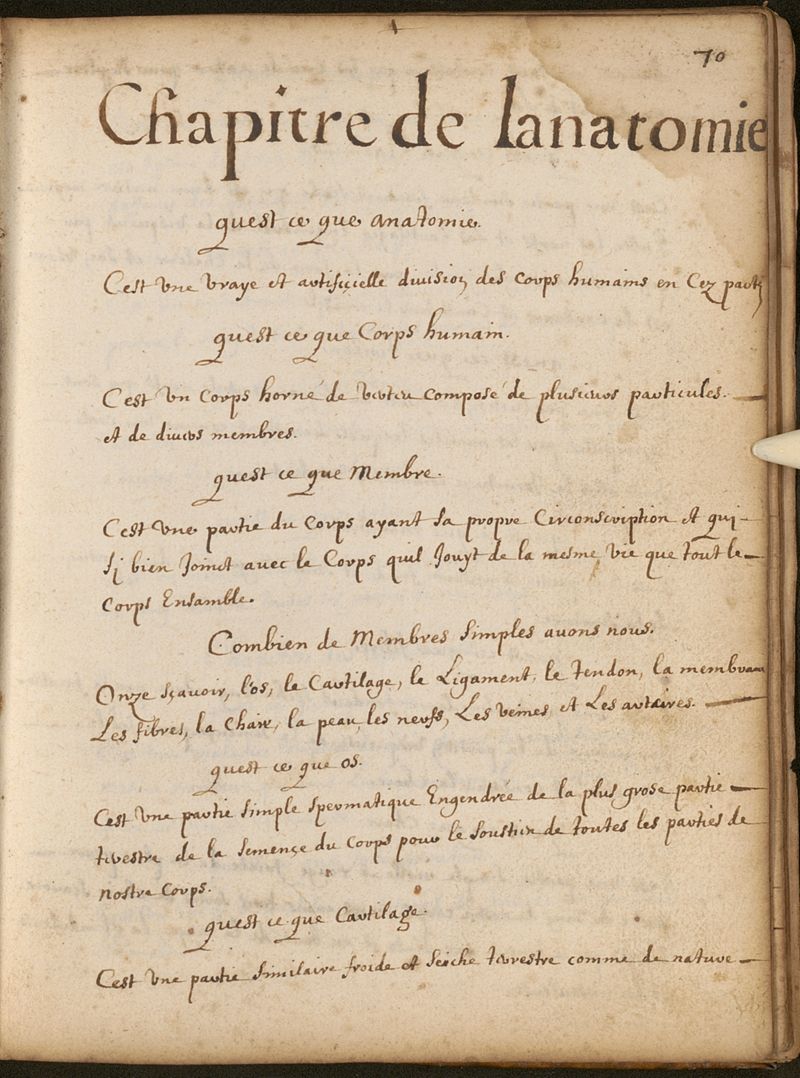 70
Chapitre de lanatomie
quest ce que anatomie.
Cest Vne Vraye et artificielle division des corps humains en Cez
quest ce que Corps humain.
Cest Vn Corps horné de compose de plusieurs particules.
et de divers membres.
quest ce que Membre.
Cest Vne partie du Corps ayant sa propre Circonscription et qui
si bien Joinct avec le Corps quil Jouyt de la mesme Vie que tout le
Corps Ensamble.
Combien de Membres simples avons nous.
Onze sçavoir, l'os, le Cartilage, le Ligament, le tendon, la
Les fibres, la Chair, la peau, les nerfs, Les Veines et Les artaires.
quest ce que os.
Cest Vne partie simple spermatique Engendrée de la plus grose partie
terrestre de la semençe du Corps pour le de toutes les parties de
nostre Corps.
quest ce que Cartilage.
Cest Vne partie similaire froide et seiche terrestre comme de nature